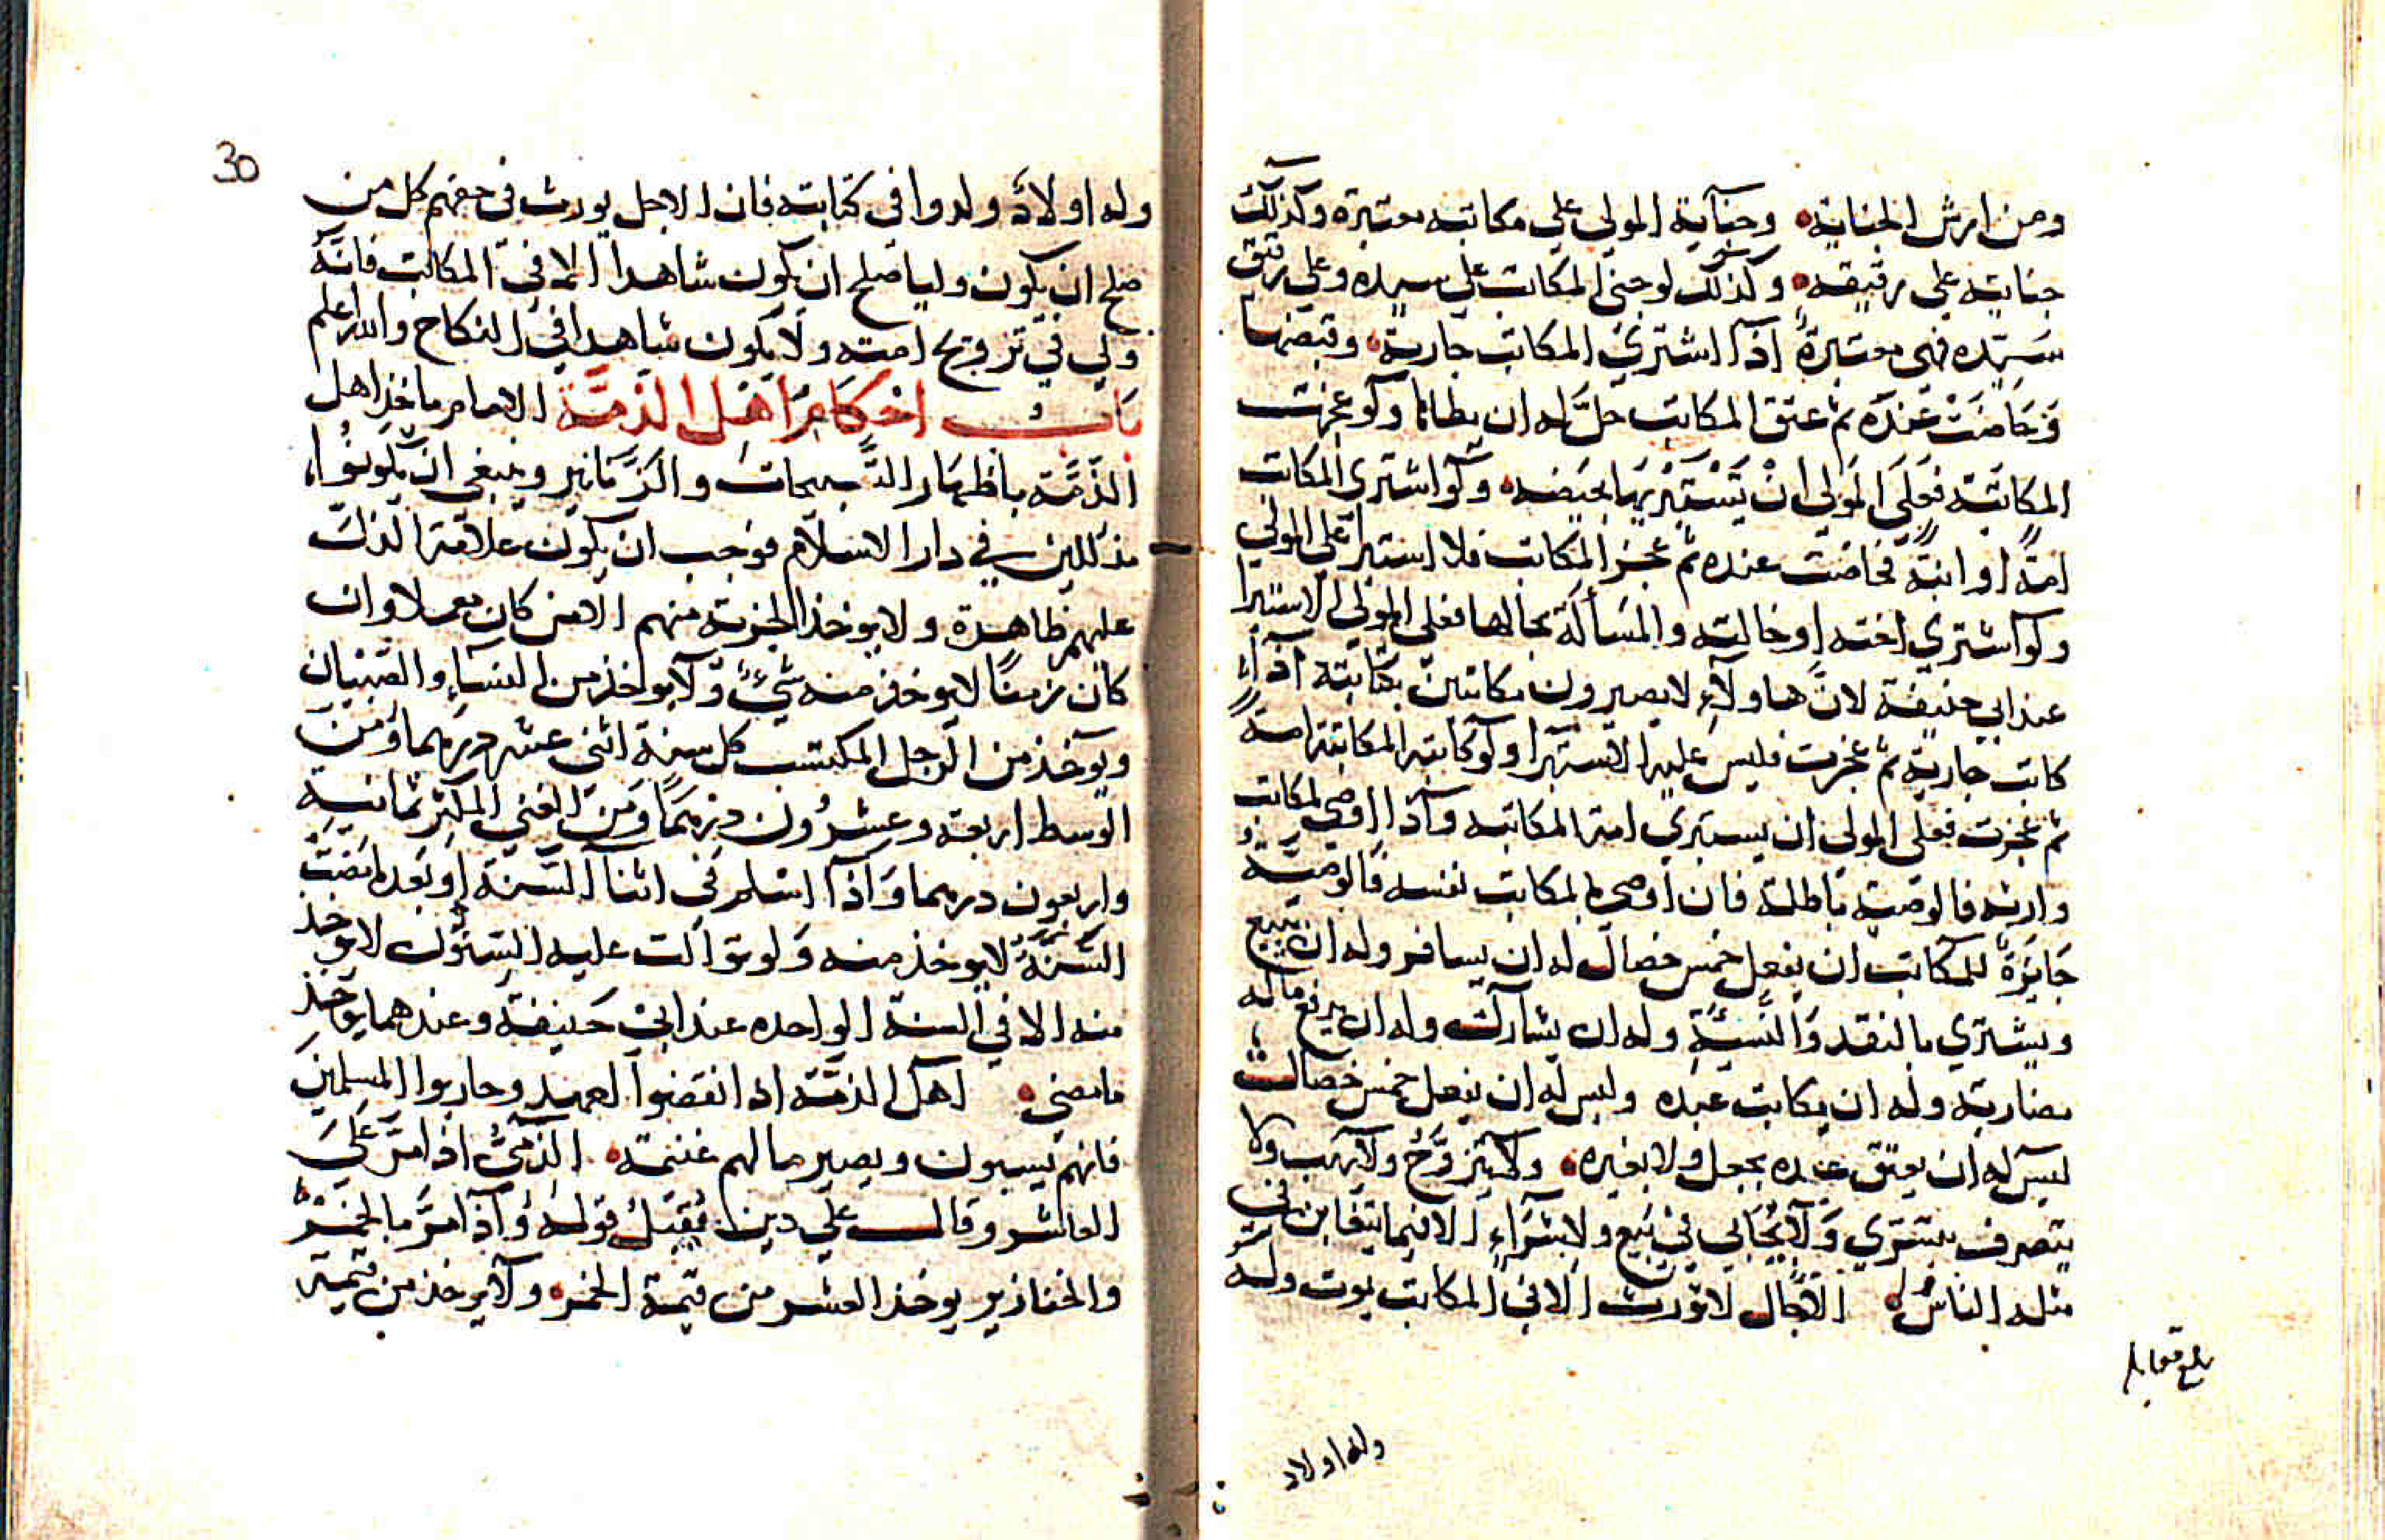 ومن ارش الجناية وجناية المولي علي مكاتبه معتبرة وكذلك
جنايته علي رقيقه وكذلك لو جني المكاتب علي سيده وعلي رقيق
سيده فهي معتبرة اذا اشتري المكاتب جارية وقبضها
وحاضت عنده ثم عتق المكاتب حل له ان يطاها ولو عجزت
المكاتبة فعلي المولي ان يستبريها بحيضه ولو اشتري المكاتب
امة او ابنة فحاضت عنده ثم عجز المكاتب فلا استبرا علي المولي
ولو اشتري اخته او خالته والمسألة بحالها فعلي المولي الاستبرا
عند ابي حنيفة لان هاولاء لا يصيرون مكاتبين بكتابته اذا
كاتب جارية ثم عجزت فليس عليه الاستبرا ولو كاتبه المكاتبة امة
ثم عجزت فعلي المولي ان يستبري امة المكاتبه واذا اوصي لمكاتب
وارثه فالوصية باطلة فان اوصي لمكاتب نفسه فالوصية
جايزة للمكاتب ان يفعل خمس خصال له ان يسافر وله ان يبيع
ويشتري بالنقد والنسية وله ان يشارك وله ان يدفع ماله
مضاربة وله ان يكاتب عبده وليس له ان يفعل خمس خصال
ليس له ان يعتق عبده بجعل ولا بغيره ولا يتزوج ولا يهب ولا
يتصرف بتسري ولا يحابي في بيع ولا شراء الا فيما يتغابن في
مثله الناس الاجال لا تورث الا في المكاتب يموت وله
وله اولاد
بلغ مقابلة
30
وله اولاد ولدوا في كتابته فان الاجل يورث في حقهم كل من
صلح ان يكون وليا صلح ان يكون شاهدا الا في المكاتب فانه
ولي في تزويج امته ولا يكون شاهدا في النكاح والله اعلم
باب احكام اهل الذمة الامام ياخذ اهل
الذمة باظهار والزنانير وينبغي ان يكونوا
مذللين في دار الاسلام فوجب ان يكون علامة الذل
عليهم ظاهرة ولا يوخذ الجزية منهم الا من كان معملا وان
كان زمنا لا يوخذ منه شيء ولا يوخذ من النساء والصبيان
ويوخذ من الرجل المكتسب كل سنة اثني عشر درهما ومن
الوسط اربعة وعشرون درهما ومن الغني المكثر ثمانية
واربعون درهما واذا اسلم في اثنا السنة او بعد ما مضت
السنة لا يوخذ منه ولو توالت عليه السنون لا يوخذ
منه الا في السنة الواحده عند ابي حنيفة وعندهما يوخذ
ما مضي اهل الذمة اذا نقضوا العهد وحاربوا المسلمين
فانهم يسبون ويصير مالهم غنيمة الذمي اذا مر علي
العاشر وقال علي دين يقبل قوله واذا مر بالخمر
والخنازير يوخذ العشر من قيمة الخمر ولا يوخذ من قيمة